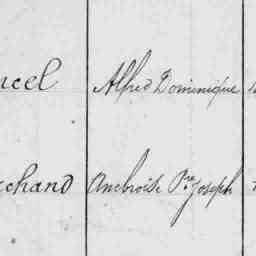 ncel Alfred Dominique
chand Ambroise Pre Joseph